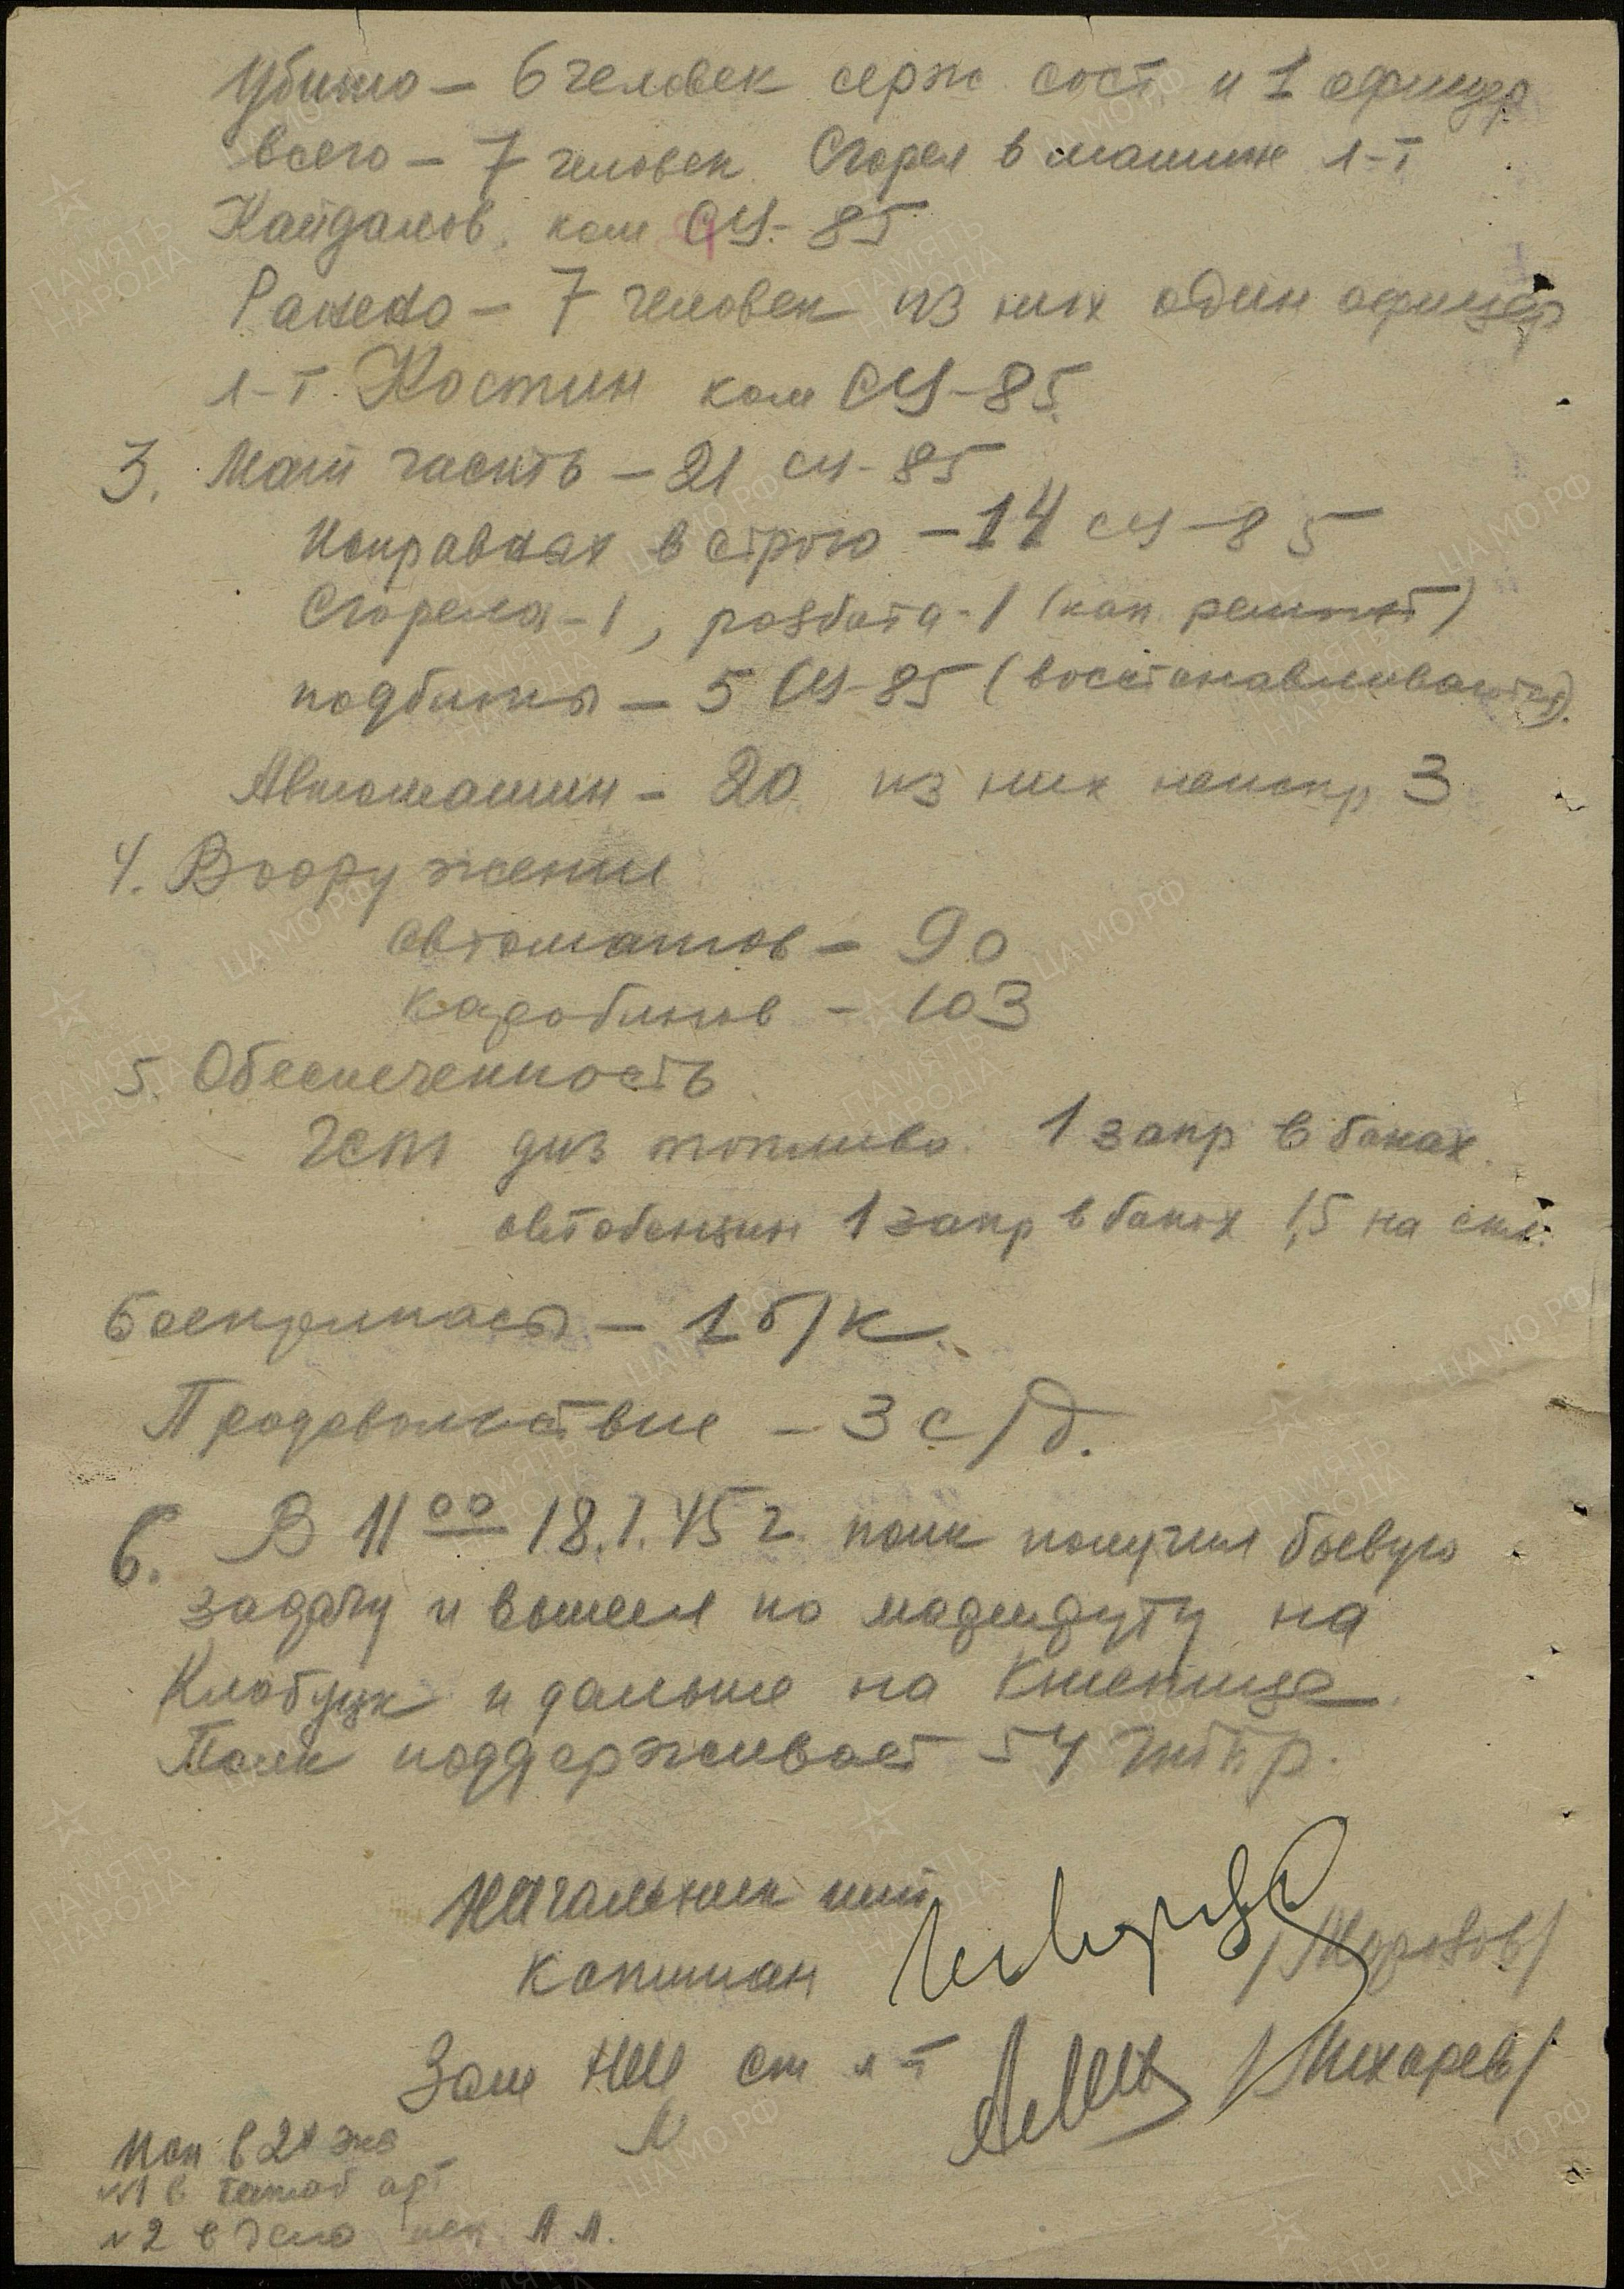 Убито – 6 человек серж сост и 1 офицер
всего – 7 человек. Сгорел в машине л-т
Кайдалов, ком СУ-85
Ранено – 7 человек из них один офицер
л-т Костин ком СУ-85.
3. Мат часть – 21 СУ-85
Исправных в строю – 14 СУ-85
Сгорела – 1, разбита – 1 (кап. ремонт)
подбиты – 5 СУ-85 (восстанавливаются).
Автомашин – 20 из них неиспр 3
4. Вооружение
автоматов – 90
карабинов – 103
5. Обеспеченность
ГСМ диз топливо 1 запр в баках.
автобензин 1 запр в баках 1,5 на скл.
Боеприпасы – 1 б/к.
Продовольствие – 3 с/д.
6. В 11 00 18.1.45 г. полк получил боевую
задачу и вышел по маршруту на
Клобуцк и дальше на Кшепице.
Полк поддерживает 54 тбр.
Начальник шт
капитан /Морозов/
Зам НШ ст л-т /Лихарев/
в 2х экз
№1 в штаб
№2 в дело